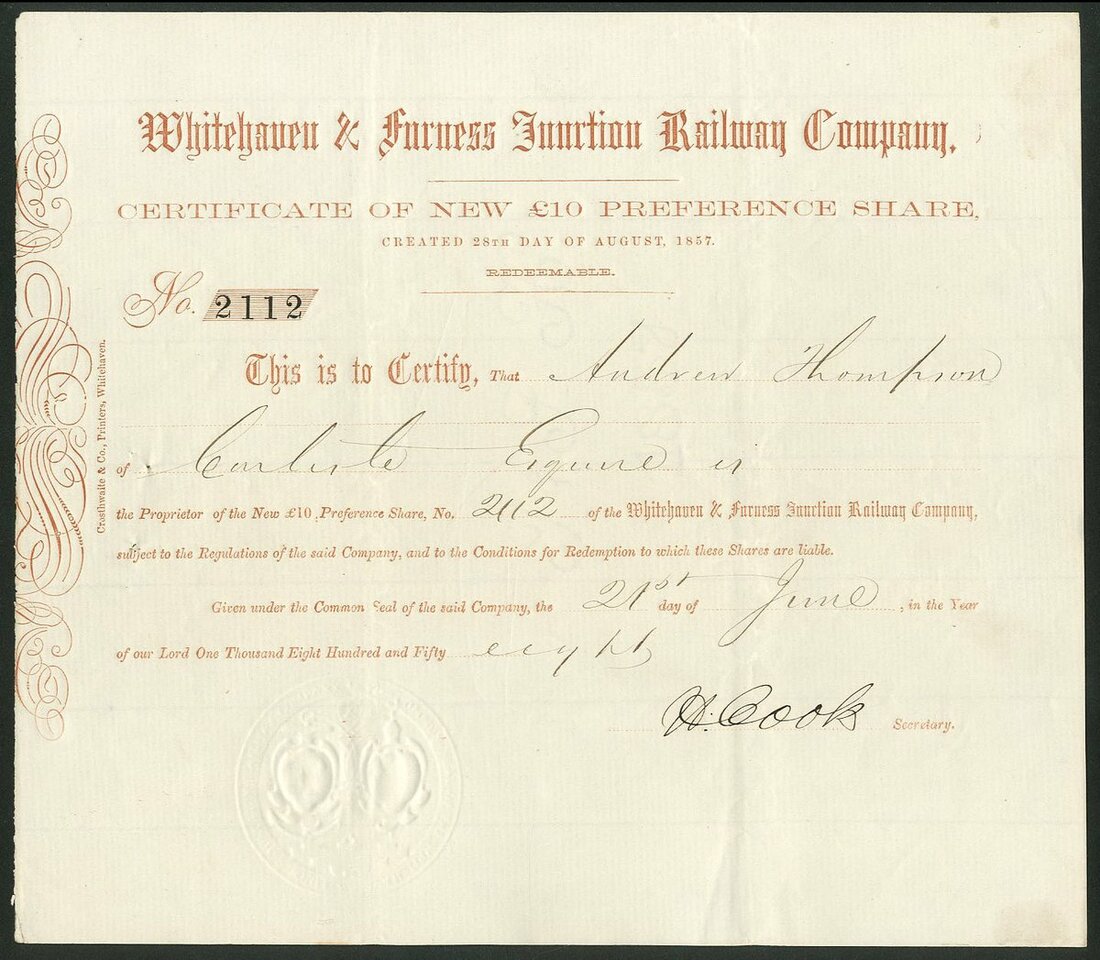 Whitehaven & Furness Junction Railway Company.
CERTIFICATE OF NEW £10 PREFERENCE SHARE,
CREATED 28TH DAY OF AUGUST, 1857.
REDEEMABLE.
No. 2112
This is to Certify, That Andrew Thompson
of Carlisle Esquire is
the Proprietor of the New £10 Preference Share, No. 2112 of the Whitehaven & Furness Junction Railway Company,
subject to the Regulations of the said Company, and to the Conditions for Redemption to which these Shares are liable.
Given under the Common Seal of the said Company, the 21st day of June, in the Year
of our Lord One Thousand Eight Hundred and Fifty eight
H. Cook Secretary.
Crosthwaite & Co., Printers, Whitehaven.